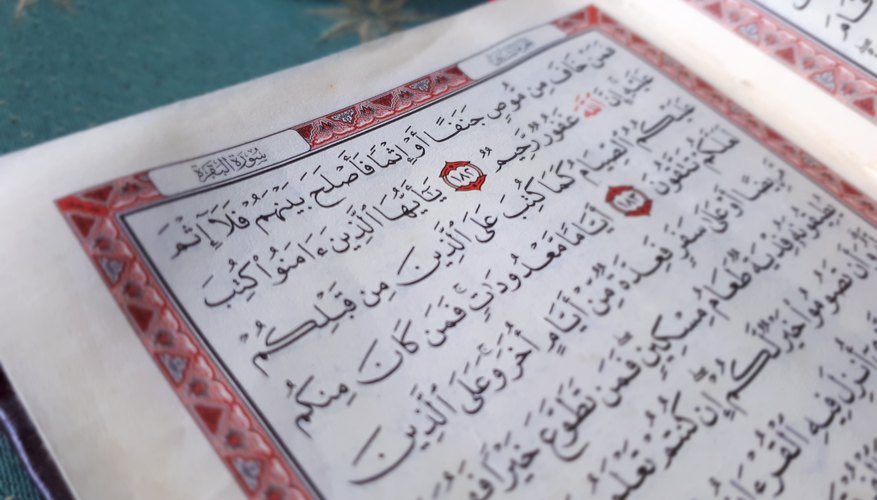 سُورَةُ البَقَرَةِ
فَمَنْ خَافَ مِن مُّوصٍ جَنَفًا أَوْ إِثْمًا فَأَصْلَحَ بَيْنَهُمْ فَلَآ إِثْمَ
عَلَيْهِ إِنَّ ٱللَّهَ غَفُورٌ رَّحِيمٌ ١٨٢ يَٰٓأَيُّهَا ٱلَّذِينَ ءَامَنُوا۟ كُتِبَ
عَلَيْكُمُ ٱلصِّيَامُ كَمَا كُتِبَ عَلَى ٱلَّذِينَ مِن قَبْلِكُمْ
لَعَلَّكُمْ تَتَّقُونَ ١٨٣ أَيَّامًا مَّعْدُودَٰتٍۚ فَمَن كَانَ مِنكُم
مَّرِيضًا أَوْ عَلَىٰ سَفَرٍ فَعِدَّةٌ مِّنْ أَيَّامٍ أُخَرَۚ وَعَلَى ٱلَّذِينَ
يُطِيقُونَهُۥ فِدْيَةٌ طَعَامُ مِسْكِينٍۖ فَمَن تَطَوَّعَ خَيْرًا
وَأَن تَصُومُوا۟ خَيْرٌ لَّكُمْۖ إِن كُنتُمْ
أُنزِلَ فِيهِ ٱلْقُرْءَا